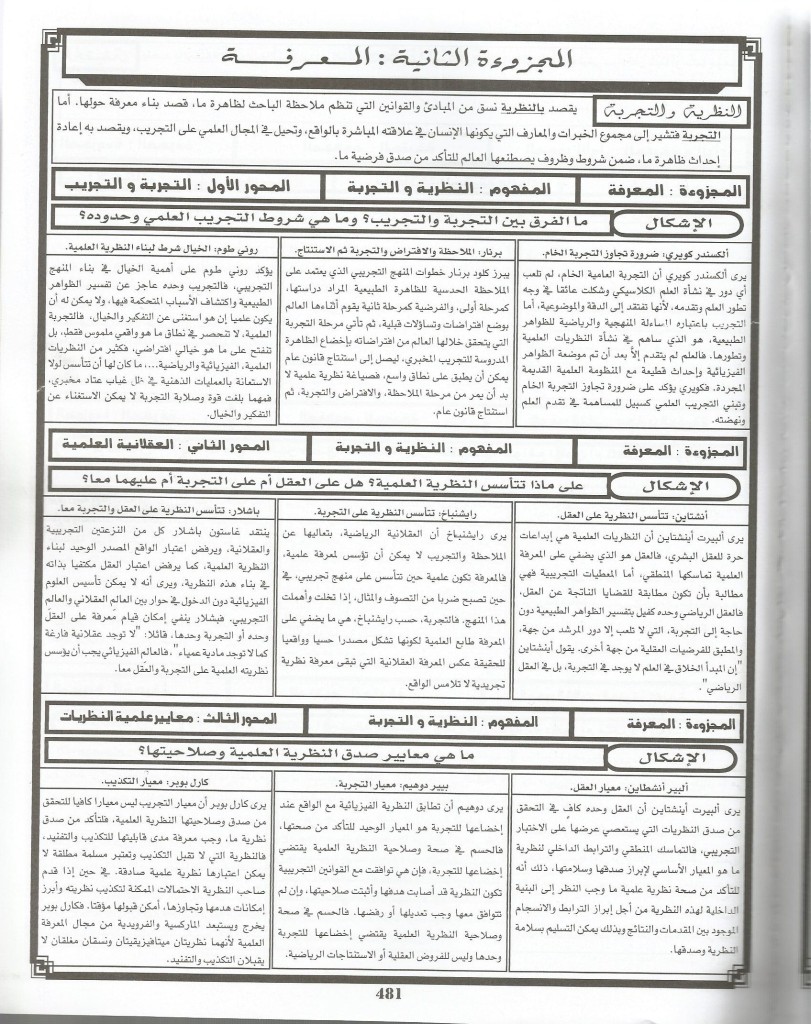 المجزوءة الثانية : المـعـرفـــة
النظرية والتجربة
يقصد بالنظرية نسق من المبادئ والقوانين التي تنظم ملاحظة الباحث لظاهرة ما، قصد بناء معرفة حولها. أما
التجربة فتشير إلى مجموع الخبرات والمعارف التي يكونها الإنسان في علاقته المباشرة بالواقع، وتحيل في المجال العلمي على التجريب، ويقصد به إعادة
إحداث ظاهرة ما، ضمن شروط وظروف يصطنعها العالم للتأكد من صدق فرضية ما.
المجزوءة : المعرفة
المفهوم : النظرية و التجربة
المحور الأول : التجربة و التجريب
الإشكال
ما الفرق بين التجربة والتجريب؟ وما هي شروط التجريب العلمي وحدوده؟
ألكسندر كويري: ضرورة تجاوز التجربة الخام.
يرى ألكسندر كويري أن التجربة العامية الخام، لم تلعب
أي دور في نشأة العلم الكلاسيكي وشكلت عائقا في وجه
تطور العلم وتقدمه، لأنها تفتقد إلى الدقة والموضوعية، أما
التجريب باعتباره المساءلة المنهجية والرياضية للظواهر
الطبيعية، هو الذي ساهم في نشأة النظريات العلمية
وتطورها. فالعلم لم يتقدم إلاّ بعد أن تم موضعة الظواهر
الفيزيائية وإحداث قطيعة مع المنظومة العلمية القديمة
المجردة. فكويري يؤكد على ضرورة تجاوز التجربة الخام
وتبني التجريب العلمي كسبيل للمساهمة في تقدم العلم
ونهضته.
برنار: الملاحظة والافتراض والتجربة ثم الاستنتاج.
يبرز كلود برنار خطوات المنهج التجريبي الذي يعتمد على
الملاحظة الحدسية للظاهرة الطبيعية المراد دراستها،
كمرحلة أولى، والفرضية كمرحلة ثانية يقوم أثناءها العالم
بوضع افتراضات وتساؤلات قبلية، ثم تأتي مرحلة التجربة
التي يتحقق خلالها العالم من افتراضاته بإخضاع الظاهرة
المدروسة للتجريب المخبري، ليصل إلى استنتاج قانون عام
يمكن أن يطبق على نطاق واسع، فصياغة نظرية علمية لا
بد أن يمر من مرحلة الملاحظة، والافتراض والتجربة، ثم
استنتاج قانون عام.
روني طوم: الخيال شرط لبناء النظرية العلمية.
يؤكد روني طوم على أهمية الخيال في بناء المنهج
التجريبي، فالتجريب وحده عاجز عن تفسير الظواهر
الطبيعية واكتشاف الأسباب المتحكمة فيها، ولا يمكن له أن
يكون علميا إن هو استغنى عن التفكير والخيال. فالتجربة
العلمية، لا تنحصر في نطاق ما هو واقعي ملموس فقط، بل
تنفتح على ما هو خيالي افتراضي، فكثير من النظريات
العلمية، الفيزيائية والرياضية....، ما كان لها أن تتأسس لولا
الاستعانة بالعمليات الذهنية في ظل غياب عتاد مخبري.
فمهما بلغت قوة وصلابة التجربة لا يمكن الاستغناء عن
التفكير والخيال.
المجزوءة : المعرفة
المفهوم : النظرية و التجربة
المحور الثاني : العقلانية العلمية
الإشكال
على ماذا تتأسس النظرية العلمية؟ هل على العقل أم على التجربة أم عليهما معا؟
أنشتاين: تتأسس النظرية على العقل.
يرى ألبيرت أينشتاين أن النظريات العلمية هي إبداعات
حرة للعقل البشري، فالعقل هو الذي يضفي على المعرفة
العلمية تماسكها المنطقي، أما المعطيات التجريبية فهي
مطالبة بأن تكون مطابقة للقضايا الناتجة عن العقل.
فالعقل الرياضي وحده كفيل بتفسير الظواهر الطبيعية دون
حاجة إلى التجربة، التي لا تلعب إلا دور المرشد من جهة،
والمطبق للفرضيات العقلية من جهة أخرى. يقول أينشتاين
"إن المبدأ الخلاق في العلم لا يوجد في التجربة، بل في العقل
الرياضي".
رايشنباخ: تتأسس النظرية على التجربة.
يرى رايشنباخ أن العقلانية الرياضية، بتعاليها عن
الملاحظة والتجريب لا يمكن أن تؤسس لمعرفة علمية،
فالمعرفة تكون علمية حين تتأسس على منهج تجريبي، في
حين تصبح ضربا من التصوف والمثال، إذا تخلت وأهملت
هذا المنهج. فالتجربة، حسب رايشنباخ، هي ما يضفي على
المعرفة طابع العلمية لكونها تشكل مصدرا حسيا وواقعيا
للحقيقة عكس المعرفة العقلانية التي تبقى معرفة نظرية
تجريدية لا تلامس الواقع.
باشلار: تتأسس النظرية على العقل والتجربة معا.
ينتقد غاستون باشلار كل من النزعتين التجريبية
والعقلانية، ويرفض اعتبار الواقع المصدر الوحيد لبناء
النظرية العلمية، كما يرفض اعتبار العقل مكتفيا بذاته
في بناء هذه النظرية، ويرى أنه لا يمكن تأسيس العلوم
الفيزيائية دون الدخول في حوار بين العالم العقلاني والعالم
التجريبي. فبشلار ينفي إمكان قيام معرفة على العقل
وحده أو التجربة وحدها، قائلا: "لا توجد عقلانية فارغة
كما لا توجد مادية عمياء"، فالعالم الفيزيائي يجب أن يؤسس
نظريته العلمية على التجربة والعقل معا.
المجزوءة : المعرفة
المفهوم : النظرية و التجربة
المحور الثالث : معايير علمية النظريات
الإشكال
ما هي معايير صدق النظرية العلمية وصلاحيتها؟
ألبير أنشطاين: معيار العقل.
يرى ألبيرت أينشتاين أن العقل وحده كافٍ في التحقق
من صدق النظريات التي يستعصي عرضها على الاختبار
التجريبي، فالتماسك المنطقي والترابط الداخلي لنظرية
ما هو المعيار الأساسي لإبراز صدقها وسلامتها، ذلك أنه
للتأكد من صحة نظرية علمية ما وجب النظر إلى البنية
الداخلية لهذه النظرية من أجل إبراز الترابط والانسجام
الموجود بين المقدمات والنتائج وبذلك يمكن التسليم بسلامة
النظرية وصدقها.
بيير دوهيم: معيار التجربة.
يرى دوهيم أن تطابق النظرية الفيزيائية مع الواقع عند
إخضاعها للتجربة هو المعيار الوحيد للتأكد من صحتها،
فالحسم في صحة وصلاحية النظرية العلمية يقتضي
إخضاعها للتجربة، فإن هي توافقت مع القوانين التجريبية
تكون النظرية قد أصابت هدفها وأثبتت صلاحيتها، وإن لم
تتوافق معها وجب تعديلها أو رفضها. فالحسم في صحة
وصلاحية النظرية العلمية يقتضي إخضاعها للتجربة
وحدها وليس للفروض العقلية أو الاستنتاجات الرياضية.
كارل بوبر: معيار التكذيب.
يرى كارل بوبر أن معيار التجريب ليس معيارا كافيا للتحقق
من صدق وصلاحيتها النظرية العلمية، فللتأكد من صدق
نظرية ما، وجب معرفة مدى قابليتها للتكذيب والتفنيد،
فالنظرية التي لا تقبل التكذيب وتعتبر مسلمة مطلقة لا
يمكن اعتبارها نظرية علمية صادقة. في حين إذا قدم
صاحب النظرية الاحتمالات الممكنة لتكذيب نظريته وأبرز
إمكانات هدمها وتجاوزها، أمكن قبولها مؤقتا. فكارل بوبر
يخرج ويستبعد الماركسية والفرويدية من مجال المعرفة
العلمية لأنهما نظريتان ميتافيزيقيتان ونسقان مغلقان لا
يقبلان التكذيب والتفنيد.
481